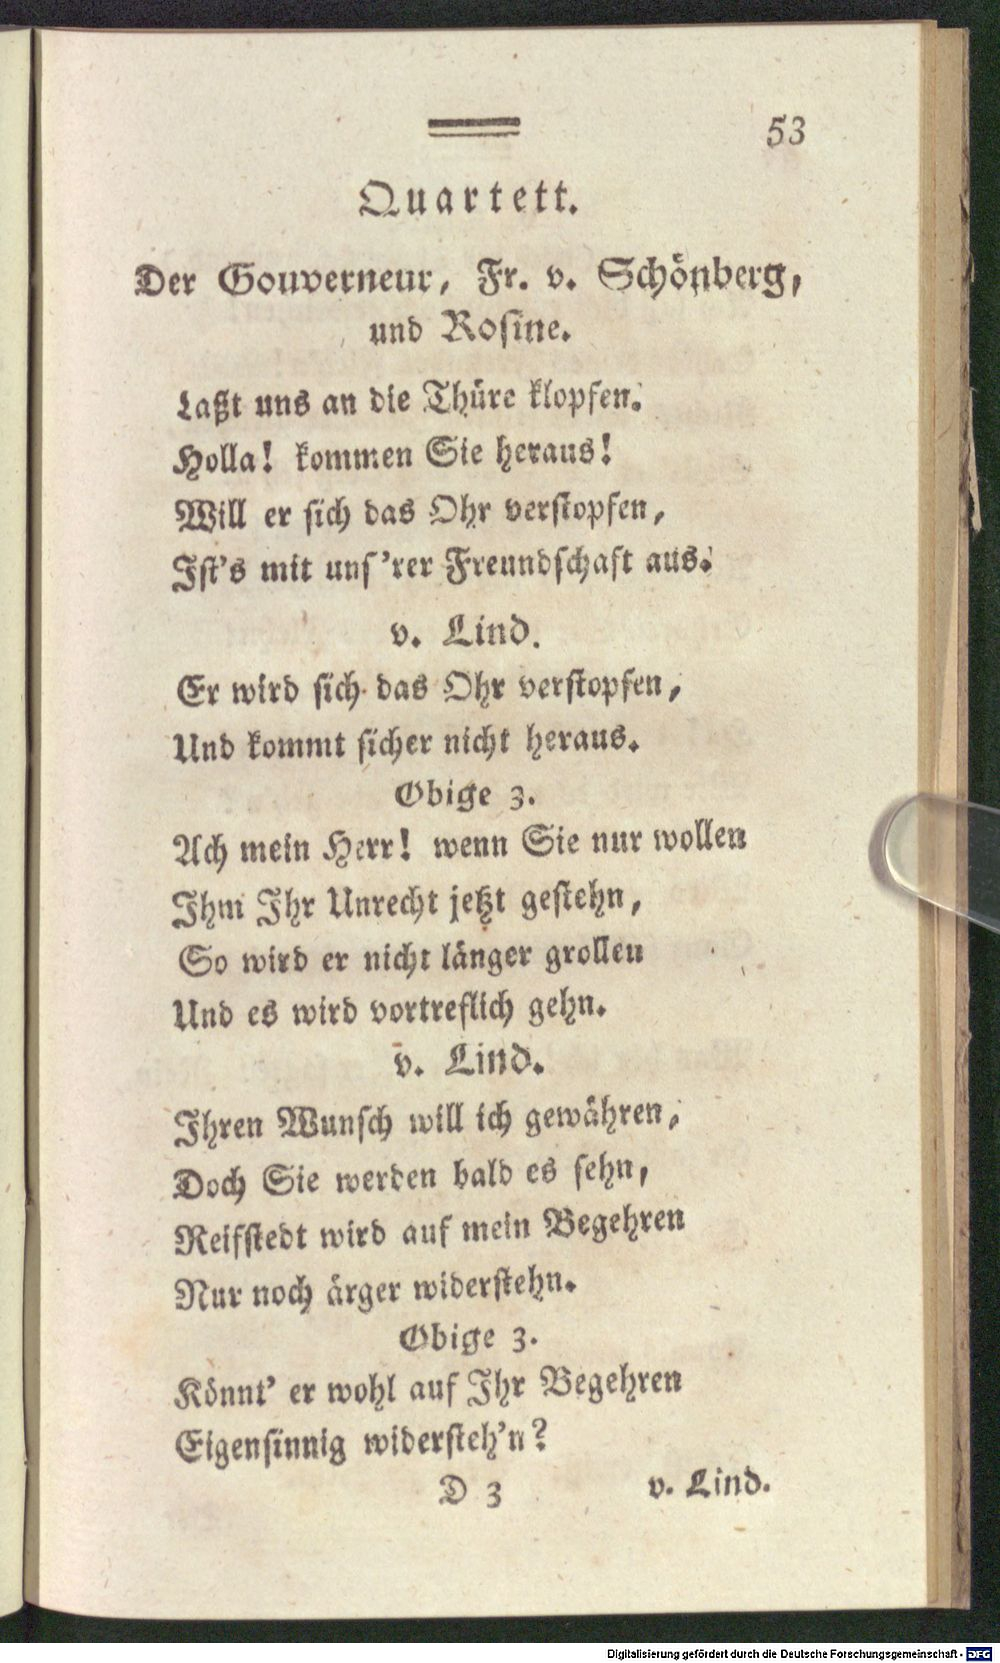 53
Quartett.
Der Gouverneur, Fr. v. Schönberg,
und Rosine.
Laßt uns an die Thüre klopfen.
Holla! kommen Sie heraus!
Will er sich das Ohr verstopfen,
Ist's mit uns'rer Freundschaft aus.
v. Lind.
Er wird sich das Ohr verstopfen,
Und kommt sicher nicht heraus.
Obige 3.
Ach mein Herr! wenn Sie nur wollen
Ihm Ihr Unrecht jetzt gestehn,
So wird er nicht länger grollen
Und es wird vortreflich gehn.
v. Lind.
Ihren Wunsch will ich gewähren,
Doch Sie werden bald es sehn,
Reifstedt wird auf mein Begehren
Nur noch ärger widerstehn.
Obige 3.
Könnt' er wohl auf Ihr Begehren
Eigensinnig widersteh'n?
D 3 v. Lind.
Digitalisierung gefördert durch die Deutsche Forschungsgemeinschaft - DFG